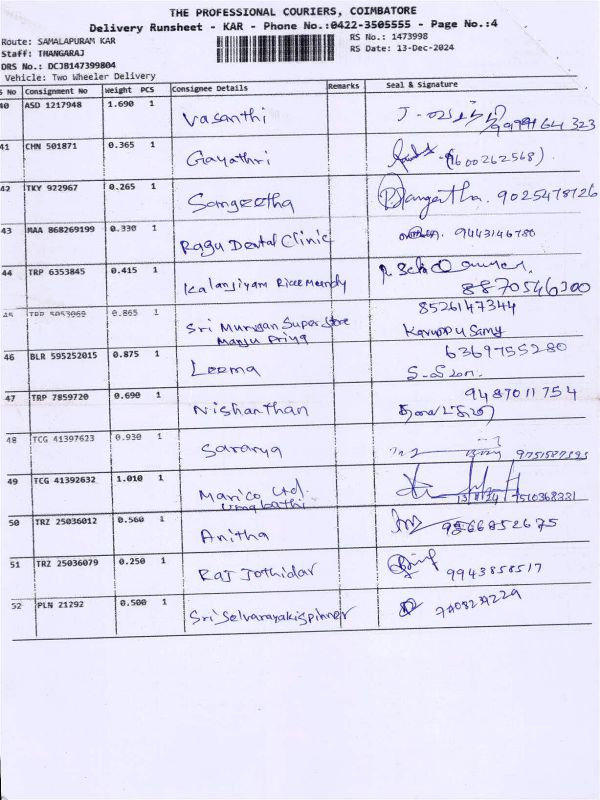 THE PROFESSIONAL COURIERS, COIMBATORE
Delivery Runsheet - KAR - Phone No.:0422-3505555 - Page No.:4
Route: SAMALAPURAM KAR
RS No.: 1473998
Staff: THANGARAJ
RS Date: 13-Dec-2024
DRS No.: DCJB147399804
Vehicle: Two Wheeler Delivery
S No Consignment No Weight PCS Consignee Details Remarks Seal & Signature
40 ASD 1217948 1.690 1 Vasanthi
41 CHN 501871 0.365 1 Gayathri (9600262568)
42 TKY 922967 0.265 1 Sangeetha Sangeetha. 9025478726
43 MAA 868269199 0.330 1 Ragu Dental Clinic 9443146780
44 TRP 6353845 0.415 1 Kalanjiyam Rice Mandy
8870546300
45 TRP 5053069 0.865 1 Sri Murugan Super Store 8526147344
Manju Priya Karuppu Samy
46 BLR 595252015 0.875 1 Leema 6369755280
47 TRP 7859720 0.690 1 Nishanthan 9487011754
48 TCG 41397623 0.930 1 Sararya
49 TCG 41392632 1.010 1 Marico Ltd. 13/12/24 7510368331
Umabathi
50 TRZ 25036012 0.560 1 Anitha 9566852675
51 TRZ 25036079 0.250 1 Raj Jothidar 9943858517
52 PLN 21292 0.500 1 Sri Selvanayakispinner